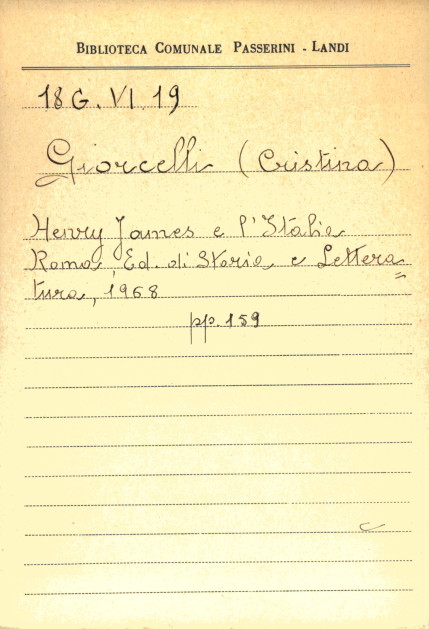 BIBLIOTECA COMUNALE PASSERINI - LANDI
18 G. VI. 19
Giorcelli (Cristina)
Henry James e l'Italia
Roma, Ed. di Storia e Lettera=
tura, 1968
pp. 159